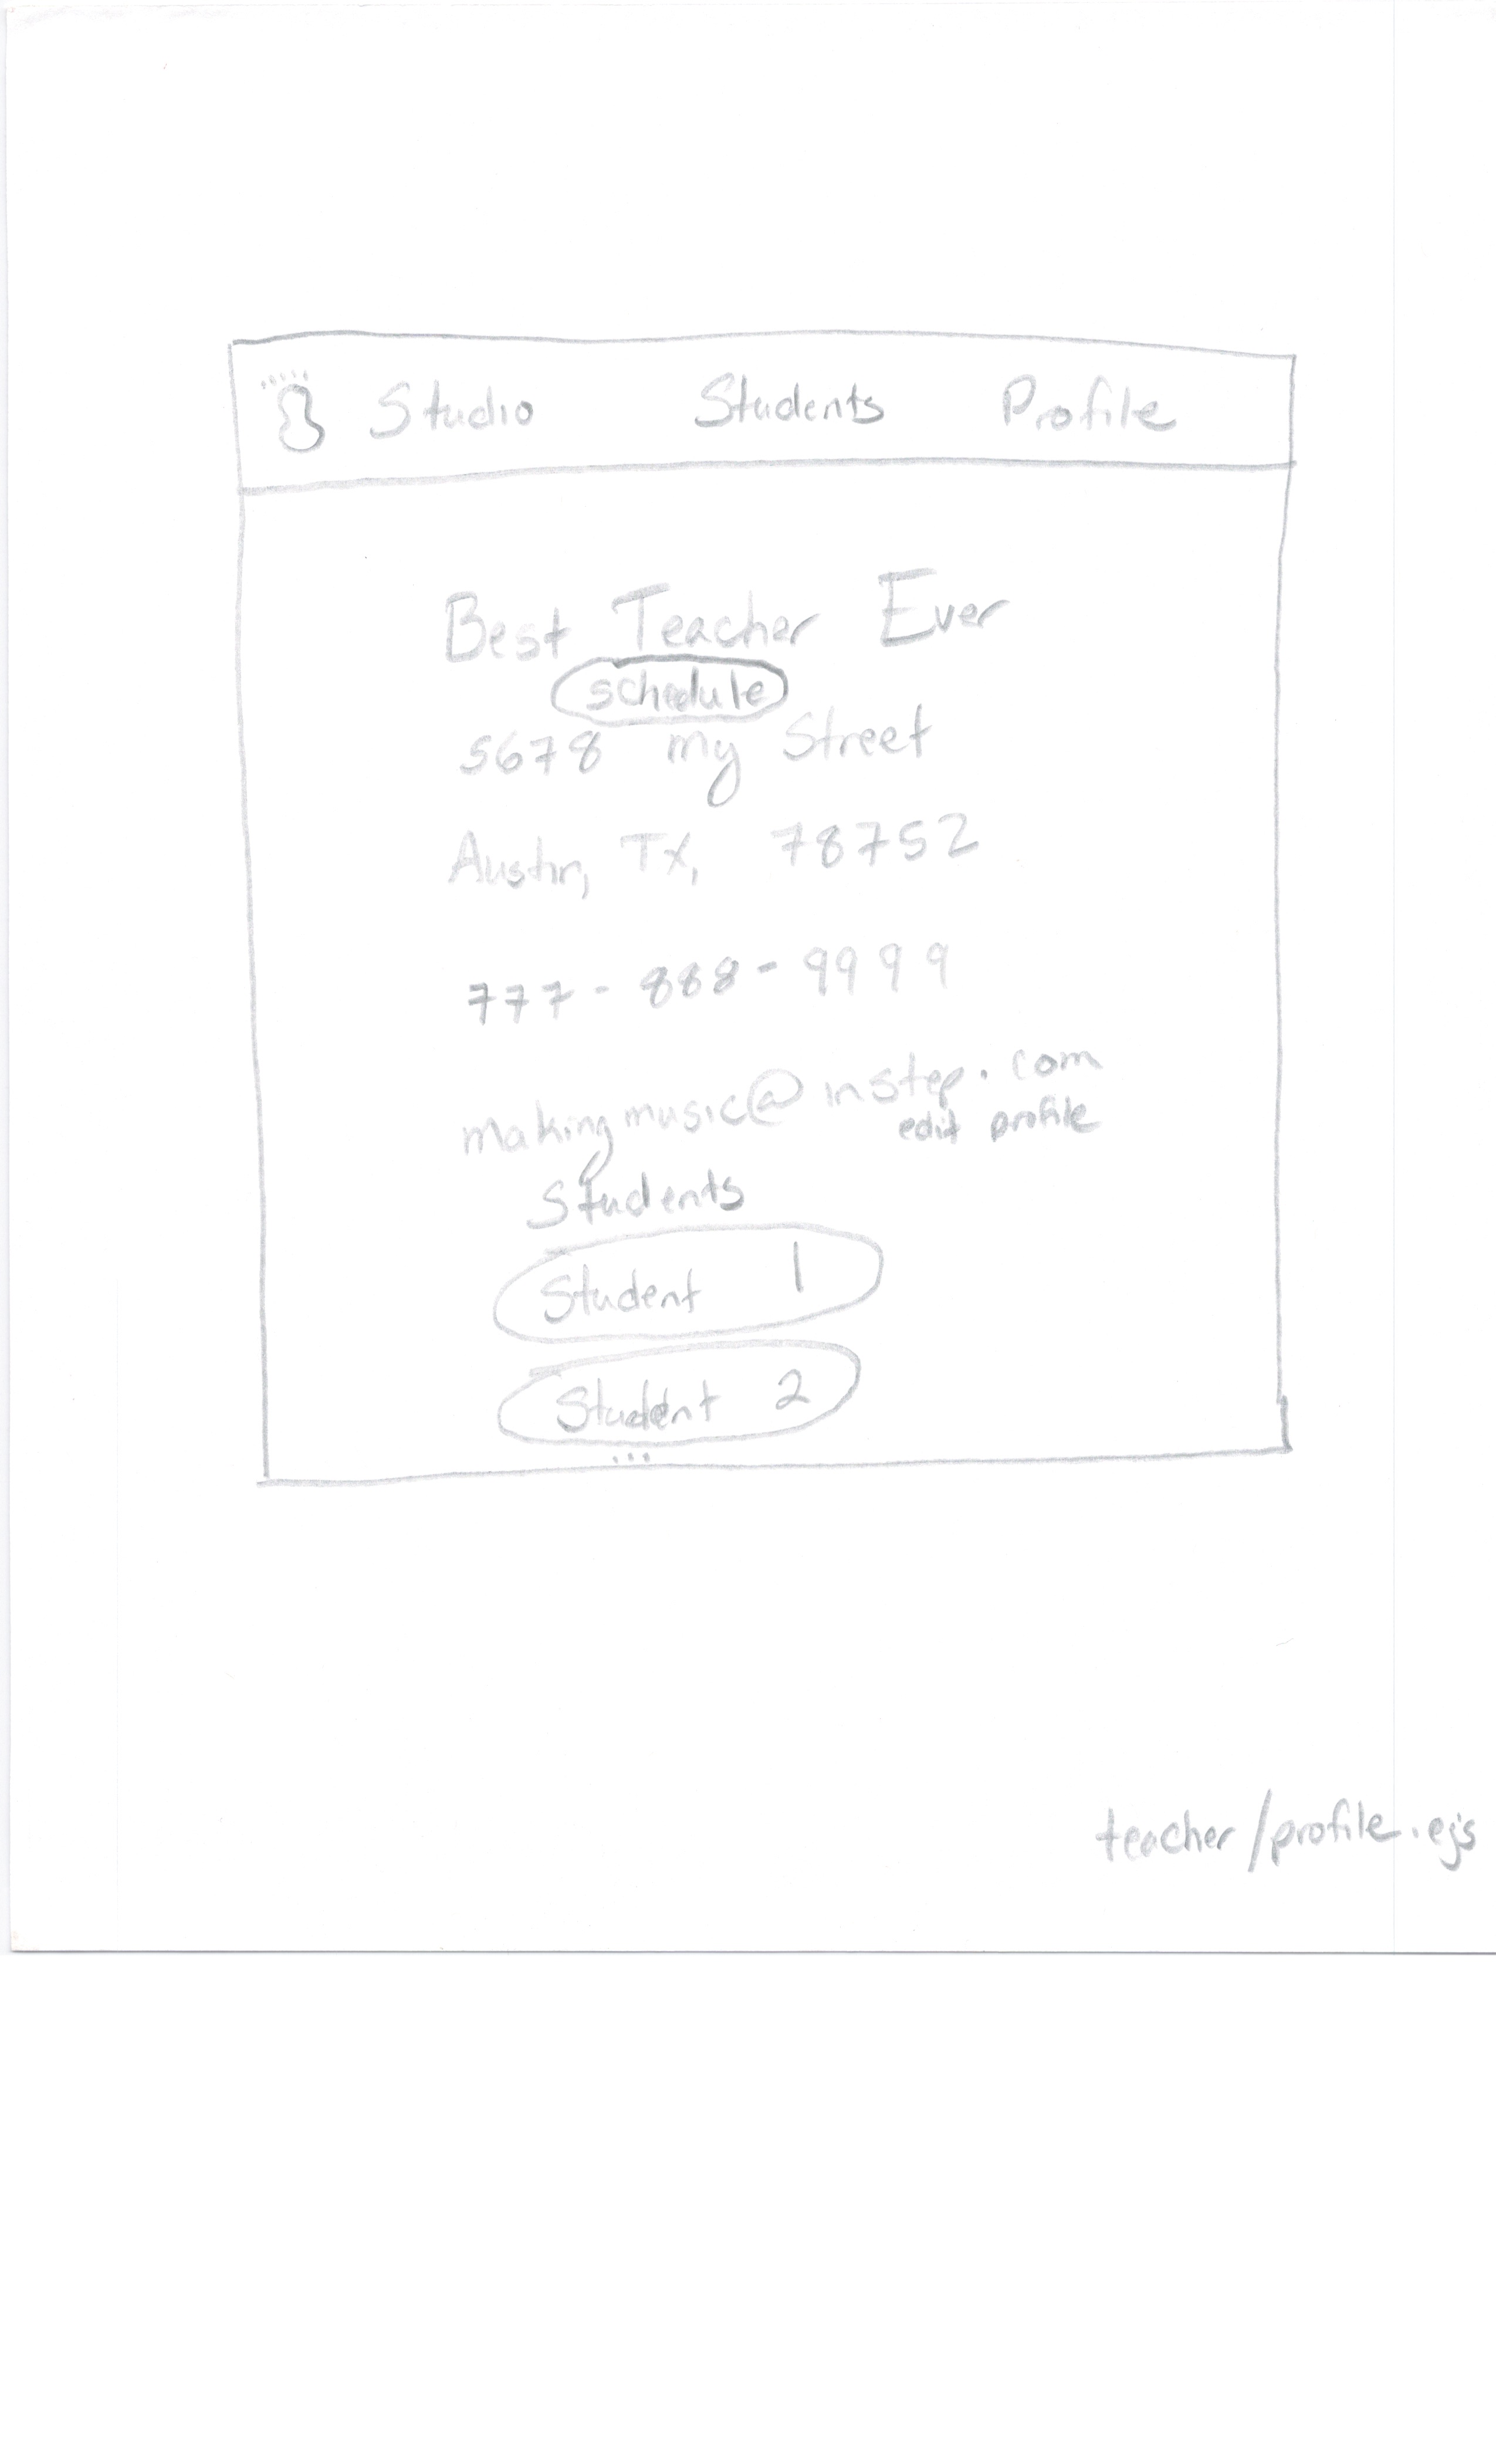 Studio Students Profile
Best Teacher Ever
schedule
5678 my Street
Austin, TX, 78752
777-888-9999
makingmusic@instep.com
edit profile
Students
Student 1
Student 2
...
teacher/profile.ejs